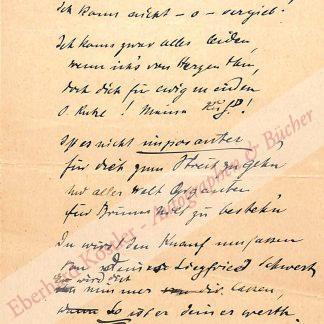 Ich kann nicht – o – vergieb!
Ich kann zwar alles leiden,
wenn ich's von Herzen thu,
doch dich für ewig meiden
O. Ruhe! Meine Ruh!
Ist es nicht imposanter
für dich zum Streit zu gehn
und aller Welt
für zu bestehn
Du wirst den Knauf umfassen
von Siegfried Schwert
wird dich
nimmer lassen,
So ist er deiner werth.
Eberhard Köstler - Autographen & Bücher